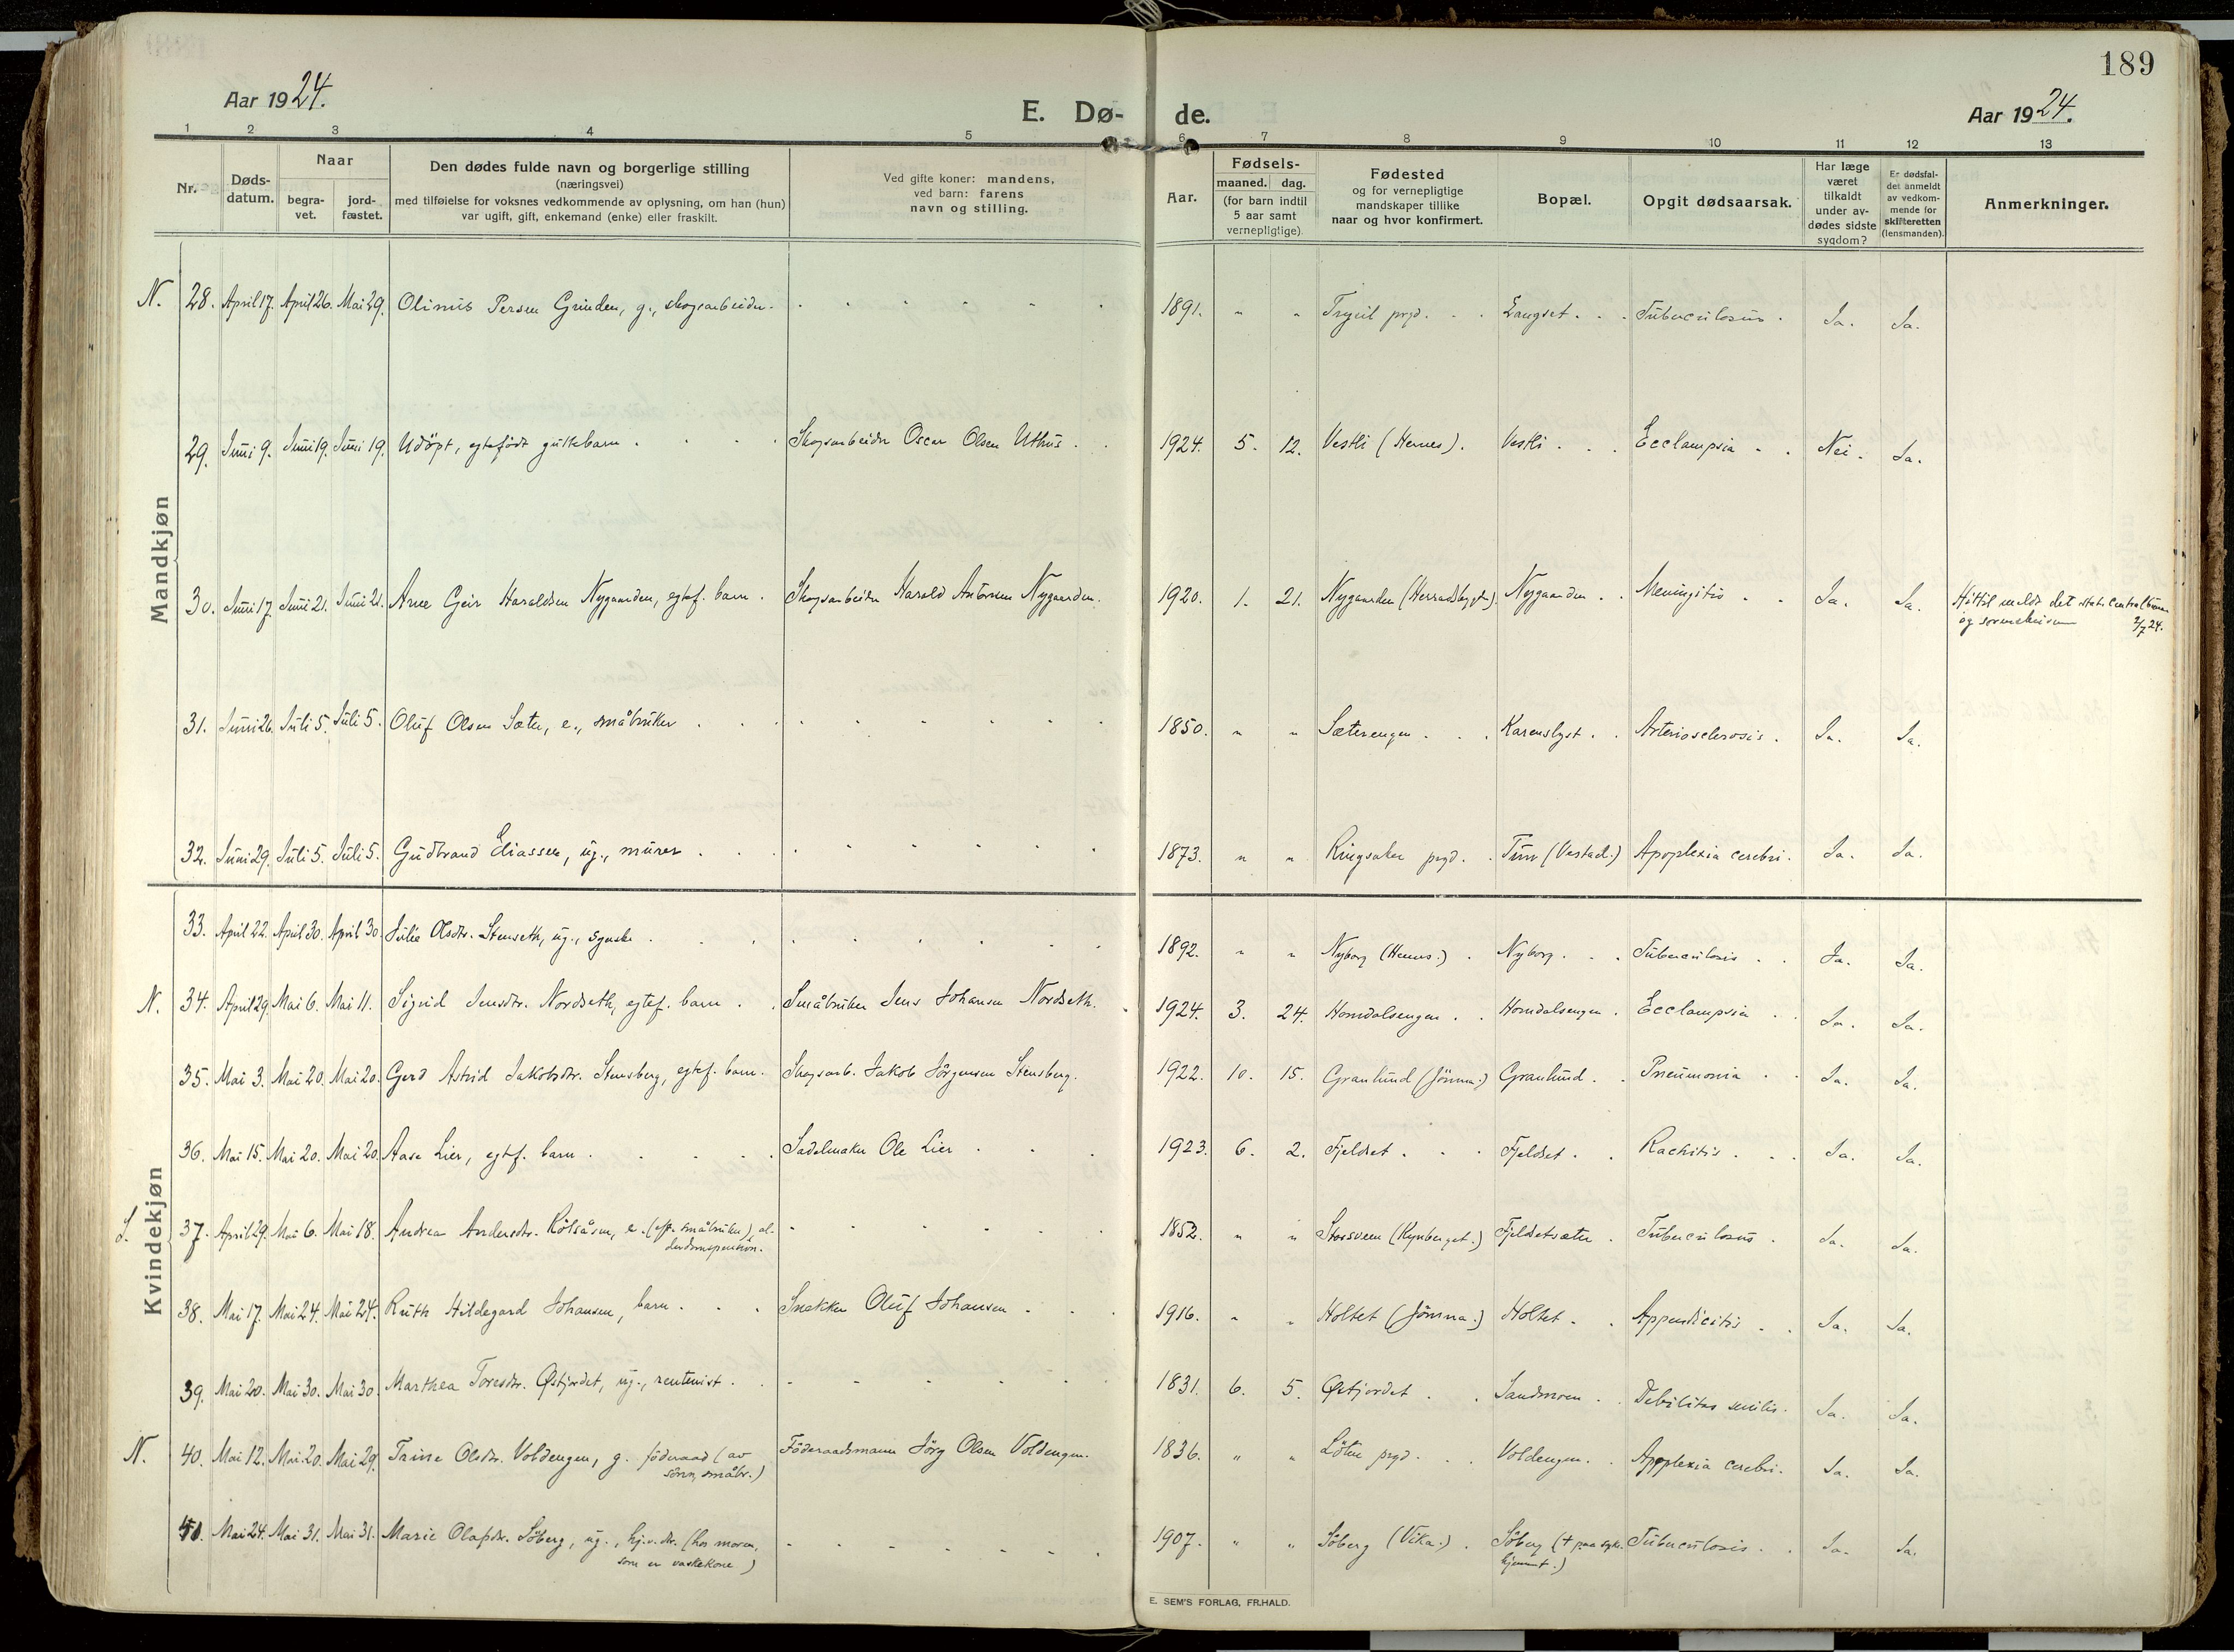 189
Aar 1924.
E. Dø- de.
Aar 1924.
1 2 3 4 5 6 7 8 9 10 11 12 13
Nr.
Døds-
datum.
Naar
begra-
vet.
jord-
fæstet.
Den dødes fulde navn og borgerlige stilling
(næringsvei)
med tilføielse for voksnes vedkommende av oplysning, om han (hun)
var ugift, gift, enkemand (enke) eller fraskilt.
Ved gifte koner: mandens,
ved barn: farens
navn og stilling.
Aar.
Fødsels-
maaned. dag.
(for barn indtil
5 aar samt
vernepligtige).
Fødested
og for vernepligtige
mandskaper tillike
naar og hvor konfirmert.
Bopæl.
Opgit dødsaarsak.
Har læge
været
tilkaldt
under av-
dødes sidste
sygdom?
Er dødsfal-
det anmeldt
av vedkom-
mende for
skifteretten
(lensmanden).
Anmerkninger.
Mandkjøn
N. 28. April 17. April 26. Mai 29. Olinus Persen Grinden, g., skogsarbeider. 1891. " " Trysil prgd. Langset. Tuberculosus. Ja. Ja.
29. Juni 9. Juni 19. Juni 19. Udöpt, egtefödt guttebarn. Skogsarbeider Oscar Olsen Uthus. 1924. 5. 12. Vestli (Hernes). Vestli. Ecclampsia. Nei. Ja.
30. Juni 17. Juni 21. Juni 21. Arne Geir Haraldsen Nygaarden, egtef. barn. Skogsarbeider Harald Antonsen Nygaarden. 1920. 1. 21. Nygaarden (Herradsbygd.) Nygaarden. Meningitis. Ja. Ja. Hittil meldt det stat. Centralbureau
og sorenskriveren 2/7 24.
31. Juni 26. Juli 5. Juli 5. Oluf Olsen Sæter, e., småbruker. 1850. " " Sæterengen. Karenslyst. Arteriosclerosis. Ja. Ja.
32. Juni 29. Juli 5. Juli 5. Gudbrand Eliassen, ug., murer. 1873. " " Ringsaker prgd. (Vestad.) Apoplexia cerebri. Ja. Ja.
Kvindekjøn
33. April 22. April 30. April 30. Julie Olsdtr. Stenseth, ug., syerske. 1892. " " Nyborg (Hernes.) Nyborg. Tuberculosis. Ja. Ja.
N. 34. April 29. Mai 6. Mai 11. Sigrid Jensdtr. Nordseth, egtef. barn. Småbruker Jens Johansen Nordseth. 1924. 3. 24. Homdalsengen. Homdalsengen. Ecclampsia. Ja. Ja.
35. Mai 3. Mai 20. Mai 20. Gerd Astrid Jakobsdtr. Stensberg, egtef. barn. Skogsarb. Jakob Jörgensen Stensberg. 1922. 10. 15. Granlund (Jömna.) Granlund. Pneumonia. Ja. Ja.
36. Mai 15. Mai 20. Mai 20. Aase Lier, egtf. barn. Sadelmaker Ole Lier. 1923. 6. 2. Fjeldset. Fjeldset. Rachitis. Ja. Ja.
S. 37. April 29. Mai 6. Mai 18. Andrea Andersdtr. Kölsåsen, e. (eft. småbruker), al-
derdomspension. 1852. " " Storsveen (Kynberget.) Fjeldsetsæter. Tuberculosus. Ja. Ja.
38. Mai 17. Mai 24. Mai 24. Ruth Hildegard Johansen, barn. Snekker Oluf Johansen. 1916. " " Holtet (Jömna.) Holtet. Appendicitis. Ja. Ja.
39. Mai 20. Mai 30. Mai 30. Marthea Toresdtr. Østjordet, ug., rentenist. 1831. 6. 5. Østjordet. Sandmoen. Debilitas senilis. Ja. Ja.
N. 40. Mai 12. Mai 20. Mai 29. Trine Olsdtr. Voldengen, g. föderaad (av
sönn, småbr.) Föderaadsmann Jörg Olsen Voldengen. 1836. " " Löten prgd. Voldengen. Apoplexia cerebri. Ja. Ja.
41. Mai 24. Mai 31. Mai 31. Marie Olafsdtr. Söberg, ug., hj.v. dtr. (hos moren,
som er vaskekone) 1907. " " Söberg (Vika.) Söberg († paa syke-
hjemmet.) Tuberculosis. Ja. Ja.
E. SEM'S FORLAG, FR.HALD.